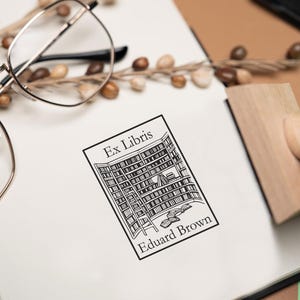 Ex Libris
Eduard Brown